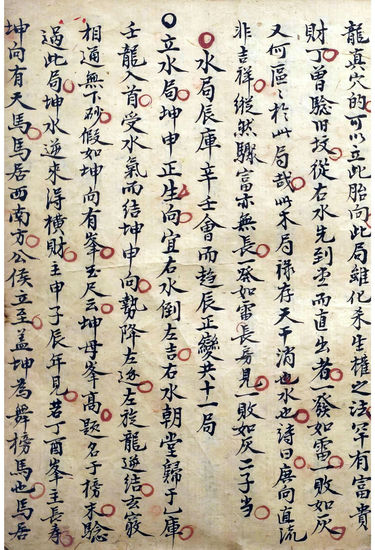 龍真穴的可以立此胎向此局維化杀生權之法罕有富貴
財丁曾騐旧坟從右水先到堂而直出者一發如雷一敗如灰
又何區〻於此局哉此木局祿存天干消也水也詩曰庚向直流
非吉祥縱然驟富示無長一發如雷長房見一敗如灰二子當
水局辰庫辛壬會而趋辰正變共十一局
立水局坤申正生向宜右水倒左吉右水朝堂歸于乙庫
壬龍入首受水氣而結坤申向勢降左逆左旋龍逆結玄竅
相通無下砂假如坤向有峯玉尺云坤母峯高題名于榜末騐
過此局坤水逆來得橫財主申子辰年見若丁酉峯主長壽
坤向有天馬馬居西南方公侯立至盖坤為舞榜馬也馬居